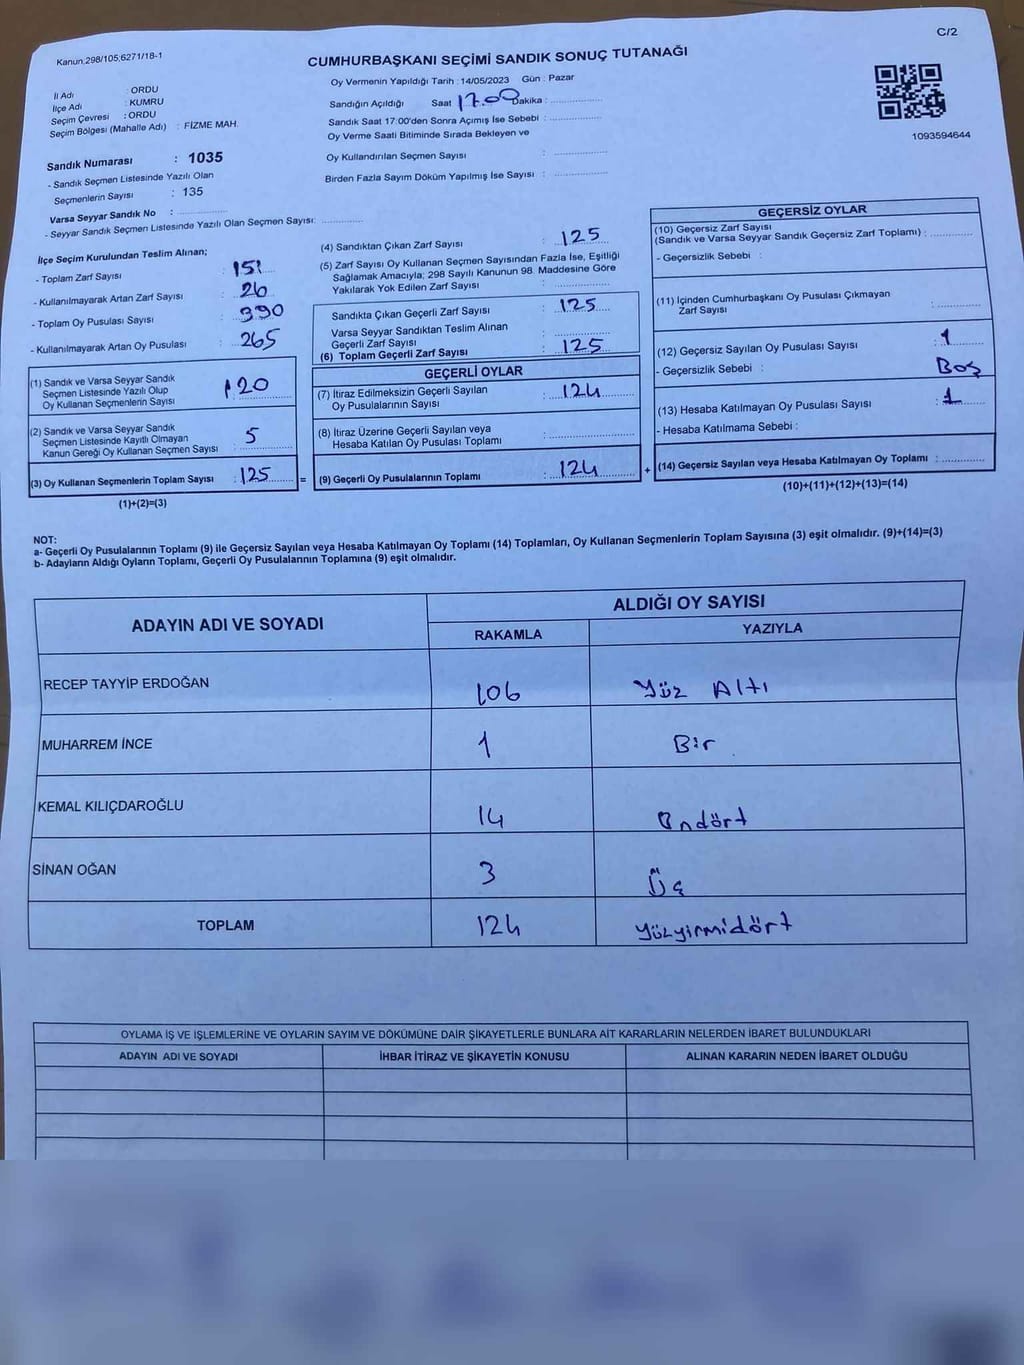 C/2
Kanun.298/105;6271/18-1
CUMHURBAŞKANI SEÇİMİ SANDIK SONUÇ TUTANAĞI
İl Adı : ORDU
İlçe Adı : KUMRU
Seçim Çevresi : ORDU
Seçim Bölgesi (Mahalle Adı) : FİZME MAH.
Sandık Numarası : 1035
- Sandık Seçmen Listesinde Yazılı Olan
Seçmenlerin Sayısı : 135
Varsa Seyyar Sandık No :
- Seyyar Sandık Seçmen Listesinde Yazılı Olan Seçmen Sayısı:
Oy Vermenin Yapıldığı Tarih : 14/05/2023 Gün : Pazar
Sandığın Açıldığı Saat 17.00 Dakika :
Sandık Saat 17:00'den Sonra Açımış İse Sebebi :
Oy Verme Saati Bitiminde Sırada Bekleyen ve
Oy Kullandırılan Seçmen Sayısı :
Birden Fazla Sayım Döküm Yapılmış İse Sayısı :
1093594644
İlçe Seçim Kurulundan Teslim Alınan;
- Toplam Zarf Sayısı : 151
- Kullanılmayarak Artan Zarf Sayısı : 26
- Toplam Oy Pusulası Sayısı : 390
- Kullanılmayarak Artan Oy Pusulası : 265
(1) Sandık ve Varsa Seyyar Sandık
Seçmen Listesinde Yazılı Olup
Oy Kullanan Seçmenlerin Sayısı : 120
(2) Sandık ve Varsa Seyyar Sandık
Seçmen Listesinde Kayıtlı Olmayan
Kanun Gereği Oy Kullanan Seçmen Sayısı : 5
(3) Oy Kullanan Seçmenlerin Toplam Sayısı : 125
(1)+(2)=(3)
=
(4) Sandıktan Çıkan Zarf Sayısı : 125
(5) Zarf Sayısı Oy Kullanan Seçmen Sayısından Fazla İse, Eşitliği
Sağlamak Amacıyla; 298 Sayılı Kanunun 98. Maddesine Göre
Yakılarak Yok Edilen Zarf Sayısı :
Sandıkta Çıkan Geçerli Zarf Sayısı : 125
Varsa Seyyar Sandıktan Teslim Alınan
Geçerli Zarf Sayısı :
(6) Toplam Geçerli Zarf Sayısı : 125
GEÇERLİ OYLAR
(7) İtiraz Edilmeksizin Geçerli Sayılan
Oy Pusulalarının Sayısı : 124
(8) İtiraz Üzerine Geçerli Sayılan veya
Hesaba Katılan Oy Pusulası Toplamı :
(9) Geçerli Oy Pusulalarının Toplamı : 124
+
GEÇERSİZ OYLAR
(10) Geçersiz Zarf Sayısı
(Sandık ve Varsa Seyyar Sandık Geçersiz Zarf Toplamı) :
- Geçersizlik Sebebi :
(11) İçinden Cumhurbaşkanı Oy Pusulası Çıkmayan
Zarf Sayısı :
(12) Geçersiz Sayılan Oy Pusulası Sayısı : 1
- Geçersizlik Sebebi : Boş
(13) Hesaba Katılmayan Oy Pusulası Sayısı : 1
- Hesaba Katılmama Sebebi :
(14) Geçersiz Sayılan veya Hesaba Katılmayan Oy Toplamı :
(10)+(11)+(12)+(13)=(14)
NOT:
a- Geçerli Oy Pusulalarının Toplamı (9) ile Geçersiz Sayılan veya Hesaba Katılmayan Oy Toplamı (14) Toplamları, Oy Kullanan Seçmenlerin Toplam Sayısına (3) eşit olmalıdır. (9)+(14)=(3)
b- Adayların Aldığı Oyların Toplamı, Geçerli Oy Pusulalarının Toplamına (9) eşit olmalıdır.
ADAYIN ADI VE SOYADI
ALDIĞI OY SAYISI
RAKAMLA YAZIYLA
RECEP TAYYİP ERDOĞAN 106 Yüz Altı
MUHARREM İNCE 1 Bir
KEMAL KILIÇDAROĞLU 14 Ondört
SİNAN OĞAN 3 Üç
TOPLAM 124 Yüzyirmidört
OYLAMA İŞ VE İŞLEMLERİNE VE OYLARIN SAYIM VE DÖKÜMÜNE DAİR ŞİKAYETLERLE BUNLARA AİT KARARLARIN NELERDEN İBARET BULUNDUKLARI
ADAYIN ADI VE SOYADI İHBAR İTİRAZ VE ŞİKAYETİN KONUSU ALINAN KARARIN NEDEN İBARET OLDUĞU